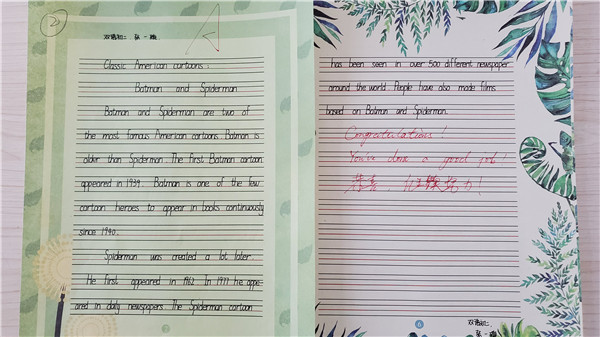 2
双语初二 张一璇
Classic American cartoons:
Batman and Spiderman
Batman and Spiderman are two of
the most famous American cartoons. Batman is
older than Spiderman. The first Batman cartoon
appeared in 1939. Batman is one of the few
cartoon heroes to appear in books continuously
since 1940.
Spiderman was created a lot later.
He first appeared in 1962. In 1977 he appe-
ared in daily newspapers. The Spiderman cartoon
has been seen in over 500 different newspaper
around the world. People have also made films
based on Batman and Spiderman.
Congratulations!
You've done a good job!
恭喜，
力！
双语初二
张一